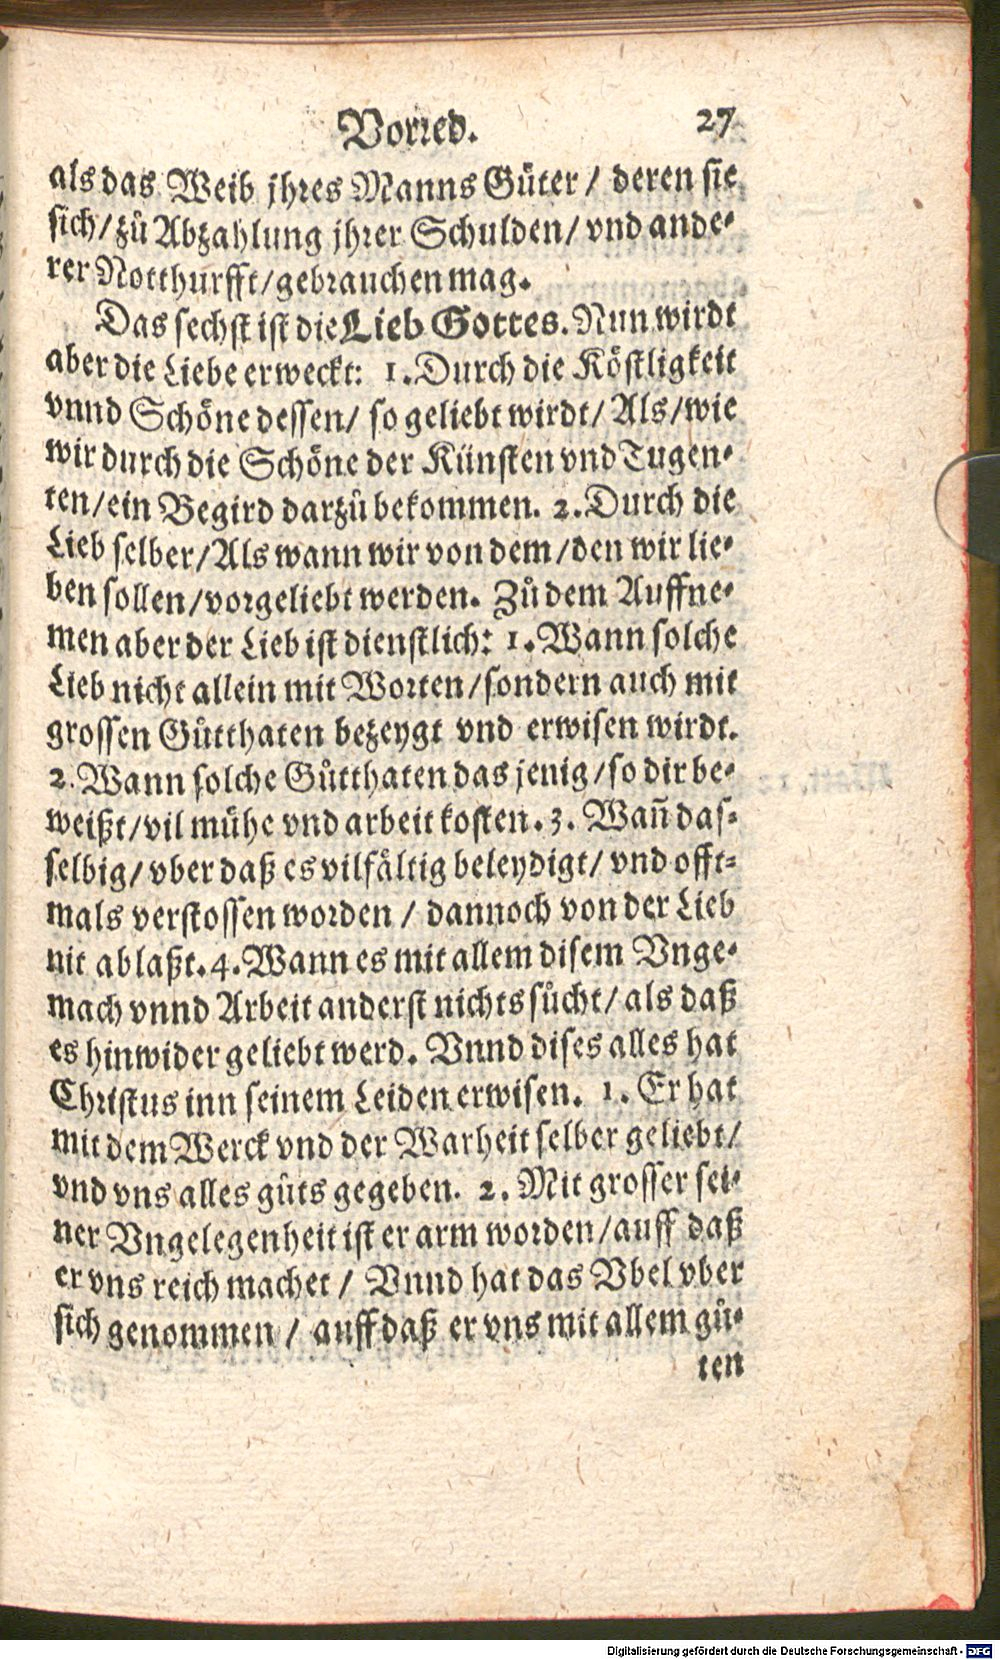 Vorred. 27
als das Weib jhres Manns Güter / deren sie
sich / zů Abzahlung jhrer Schulden / vnd ande-
rer Notthurfft / gebrauchen mag.
Das sechst ist die Lieb Gottes. Nun wirdt
aber die Liebe erweckt: 1. Durch die Köstligkeit
vnnd Schöne dessen / so geliebt wirdt / Als / wie
wir durch die Schöne der Künsten vnd Tugen-
ten / ein Begird darzů bekommen. 2. Durch die
Lieb selber / Als wann wir von dem / den wir lie-
ben sollen / vorgeliebt werden. Zů dem Auffne-
men aber der Lieb ist dienstlich: 1. Wann solche
Lieb nicht allein mit Worten / sondern auch mit
grossen Gůtthaten bezeygt vnd erwisen wirdt.
2. Wann solche Gůtthaten das jenig / so dir be-
weißt / vil mühe vnd arbeit kosten. 3. Wañ das-
selbig / vber daß es vilfältig beleydigt / vnd offt-
mals verstossen worden / dannoch von der Lieb
nit ablaßt. 4. Wann es mit allem disem Vnge-
mach vnnd Arbeit anderst nichts sůcht / als daß
es hinwider geliebt werd. Vnnd dises alles hat
Christus inn seinem Leiden erwisen. 1. Er hat
mit dem Werck vnd der Warheit selber geliebt /
vnd vns alles gůts gegeben. 2. Mit grosser sei-
ner Vngelegenheit ist er arm worden / auff daß
er vns reich machet / Vnnd hat das Vbel vber
sich genommen / auff daß er vns mit allem gů-
ten
Digitalisierung gefördert durch die Deutsche Forschungsgemeinschaft - DFG